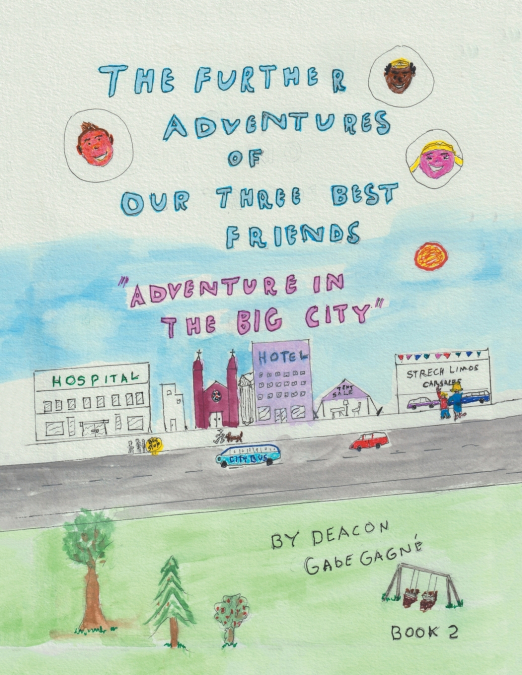 THE FURTHER
ADVENTURES
OF
OUR THREE BEST
FRIENDS
"ADVENTURE IN
THE BIG CITY"
HOSPITAL
HOTEL
TENT
SALE
STRECH LIMOS
CITY BUS
BY DEACON
GABE GAGNÉ
BOOK 2